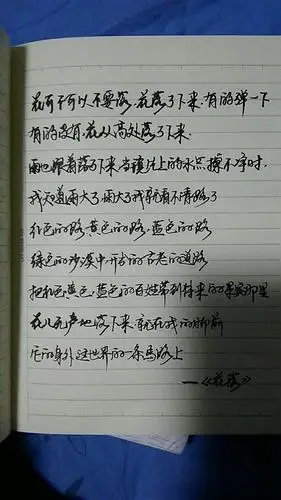 花可不可以不要落,花落了下来,有的弹一下
有的没有,花从高处落了下来.
雨也跟着落了下来,当镜片上的水点擦不净时,
我知道雨大了,雨大了我就看不清路了
红色的路,黄色的路,蓝色的路
绿色的沙漠中开出的古老的道路
把红色,黄色,蓝色的
花儿无声地落下来,就在我的脚前
世界的一条马路上
——《花落》